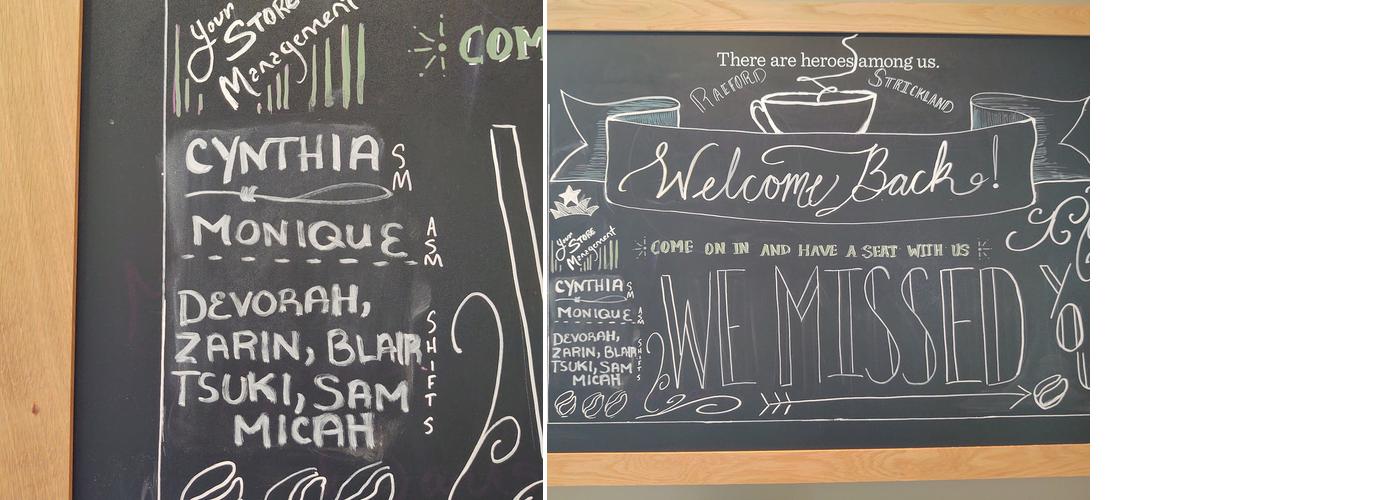 Your
STORE
Management
COM
CYNTHIA SM
MONIQUE ASM
DEVORAH,
ZARIN, BLAIR
TSUKI, SAM
MICAH
SHIFTS
There are heroes among us.
RAEFORD STRICKLAND
Welcome Back!
Your
STORE
Management
COME ON IN AND HAVE A SEAT WITH US
CYNTHIA SM
MONIQUE ASM
DEVORAH,
ZARIN, BLAIR
TSUKI, SAM
MICAH
SHIFTS
WE MISSED
YOU